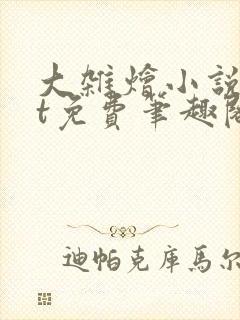 大雜燴小說
t免費筆趣閣
迪帕克庫馬尔